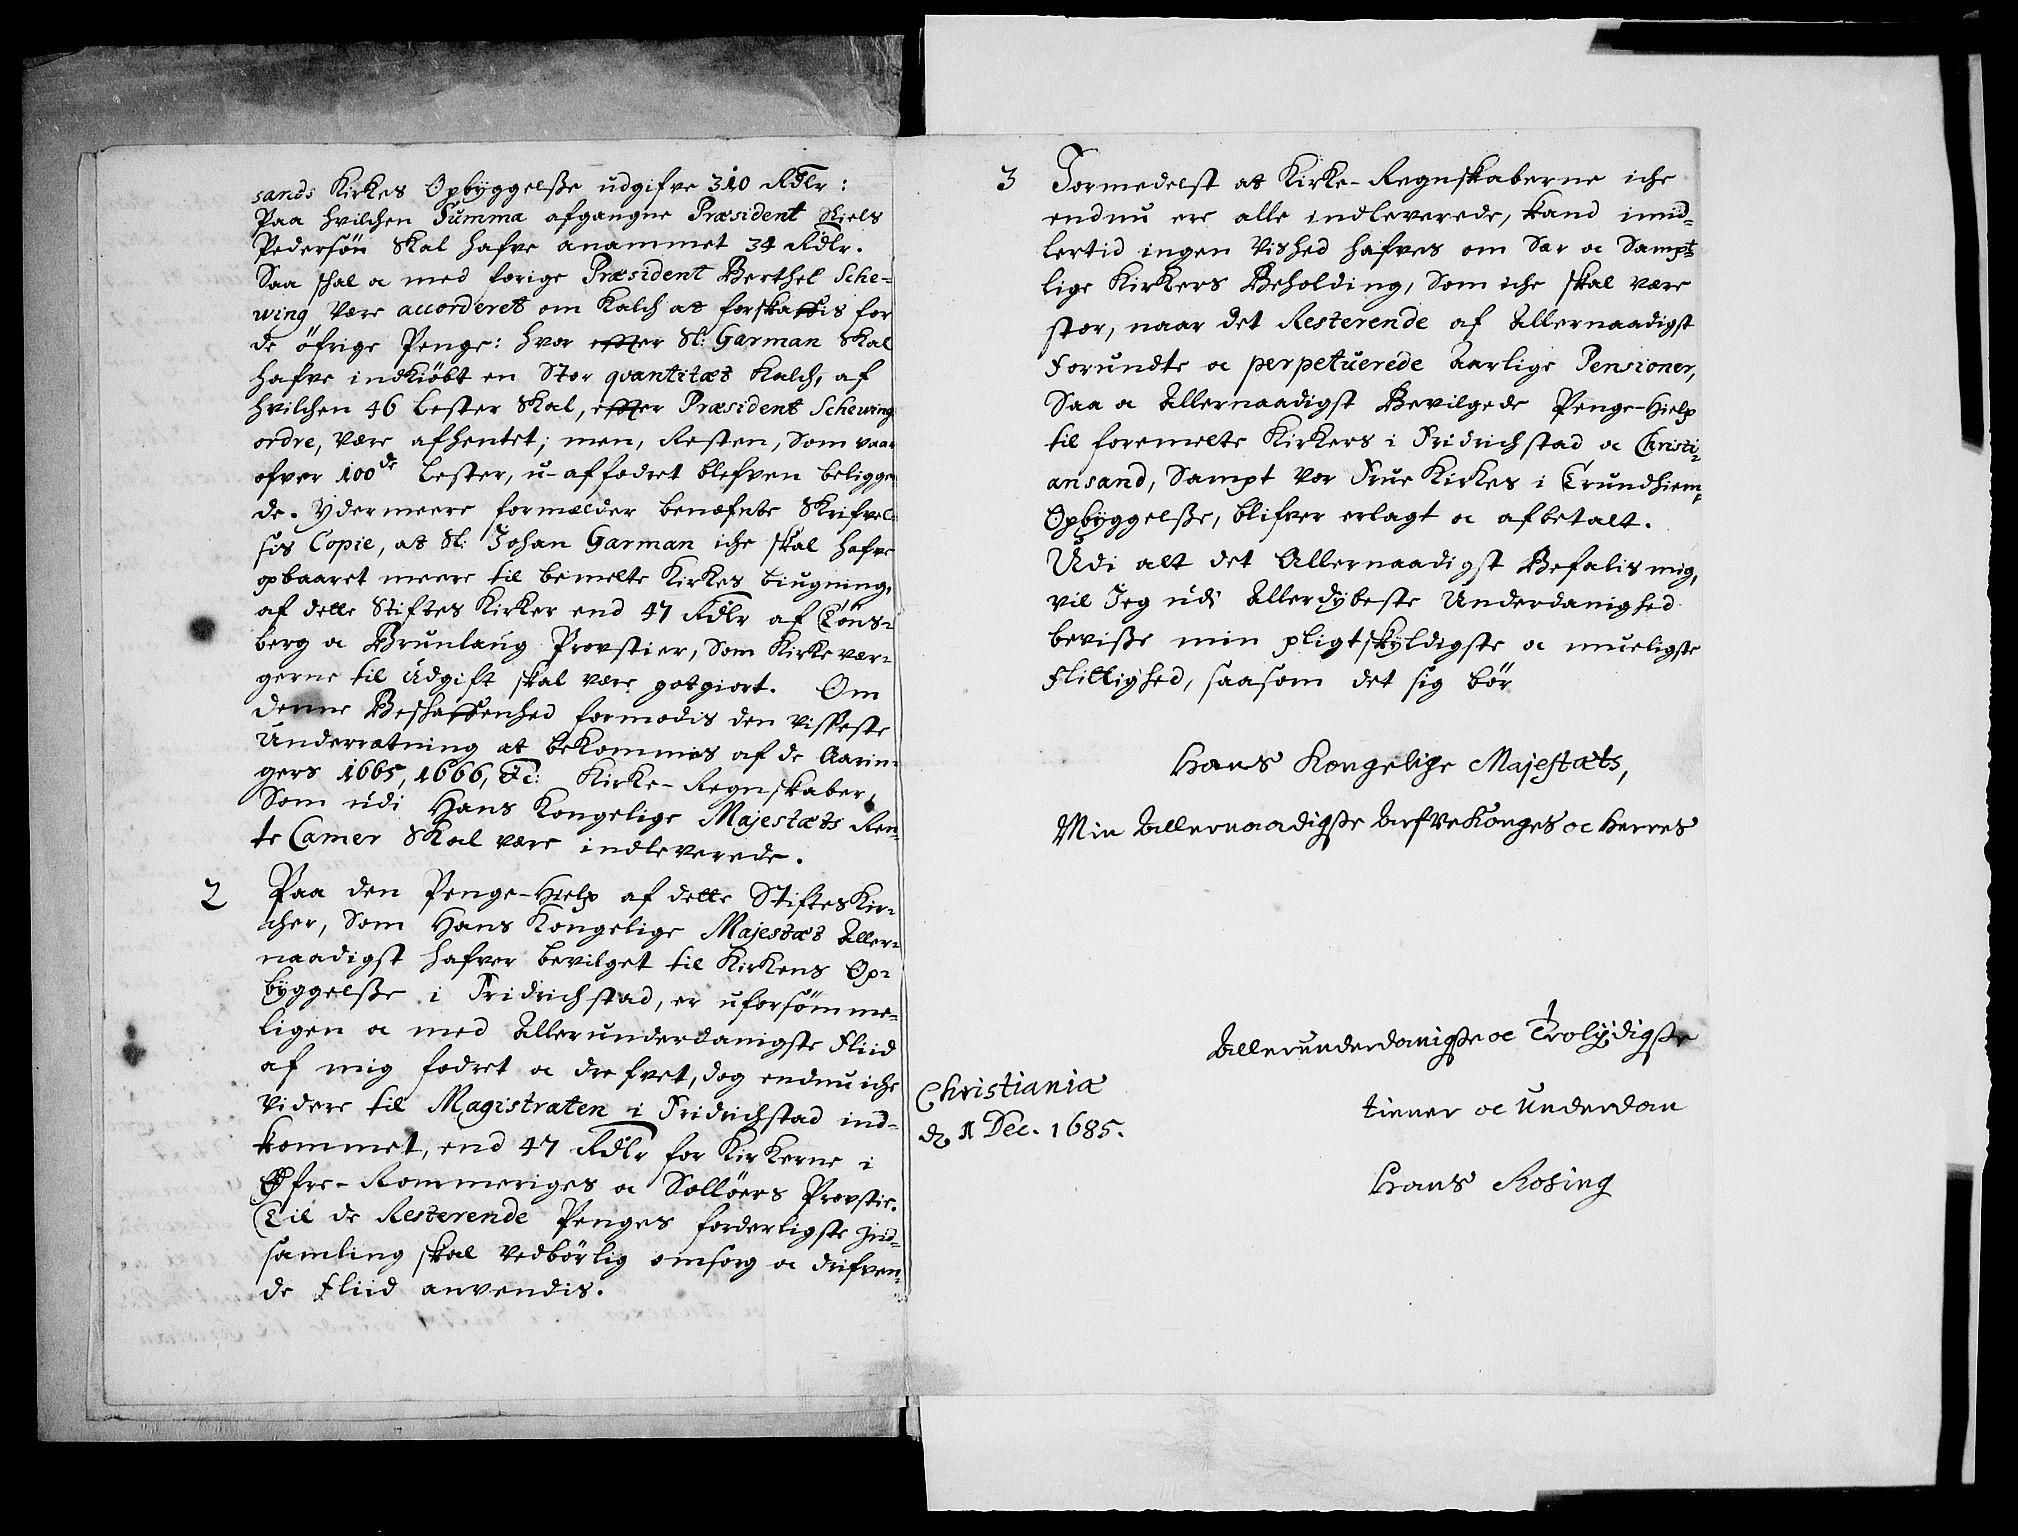 sands Kirkes Opbyggelße udgifve 310 Rdlr:
Paa hvilchen Summa afgangne Præsident Niels
Pedersön Skal hafve anammet 34 Rdlr.
Saa schal oc med forige Præsident Berthel Sche-
wing være accorderet om Kalch at forskaffis for
de öfrige Penge: hvor effter Sl: Garman Skal
hafve indkiöbt en Stor qvantitæt Kalch, af
hvilchen 46 Lester Skal, effter Præsident Schewing
ordre, være afhentet; men, Resten, Som vaar
ofver 100de Lester, u-affodret blefven beliggen-
de. Ydermeere formælder benæfnte Skrifvel-
sis Copie, at Sl: Johan Garman iche skal hafve
opbaaret meere til bemelte Kirkes biugning,
af dette Stiftes Kirker end 47 Rdlr af Töns-
berg oc Brunlaug Provstier, Som Kirkevær-
gerne til Udgift skal være gotgiort. Om
denne Beschaffenhed formodis den visseste
Underrætning at bekommes af de Aarin-
gers 1665, 1666, &c: Kirke-Regnskaber,
Som udi Hans Kongelige Majestæts Ren-
te Camer Skal være indleverede.
2 Paa den Penge-Hielp af dette Stiftes Kir-
cher, Som Hans Kongelige Majestæt Aller-
naadigst hafver bevilget til Kirkens Op-
byggelße i Fridrichstad, er uforsömme-
ligen oc med Allerunderdanigste Fliid
af mig fodret oc drefvet, dog endnu iche
videre til Magistraten i Fridrichstad ind-
kommet, end 47 Rdlr for Kirkerne i
Öfre-Rommeriges oc Sollöers Provstie.
Til de Resterende Penges forderligste Ind-
samling skal vedbörlig omsorg oc drifven-
de Fliid anvendis.
3 Formedelst at Kirke-Regnskaberne iche
endnu ere alle indleverede, kand imid-
lertid ingen Vished hafves om Sær oc Sampt-
lige Kirkers Beholding, Som iche skal være
stor, naar det Resterende af Allernaadigst
Forundte oc perpetuerede Aarlige Pensioner,
Saa oc Allernaadigst Bevilgede Penge-Hielp
til foremelte Kirkers i Fridrichstad oc Christi-
ansand, Sampt Vor Frue Kirkes i Trundhiem-
Opbyggelße, blifver erlagt oc afbetalt.
Udi alt det Allernaadigst Befalis mig,
vil Jeg udi Allerdybeste Underdanighed
beviße min pligtskyldigste oc mueligste
Flittighed, saasom det sig bör
Hans Kongelige Majestæts,
Min Allernaadigste ArfveKonges oc Herres
Allerunderdanigste oc Trolydigste
tiener oc Underdan
Hans Rosing
Christiania
d. 11 Dec. 1685.